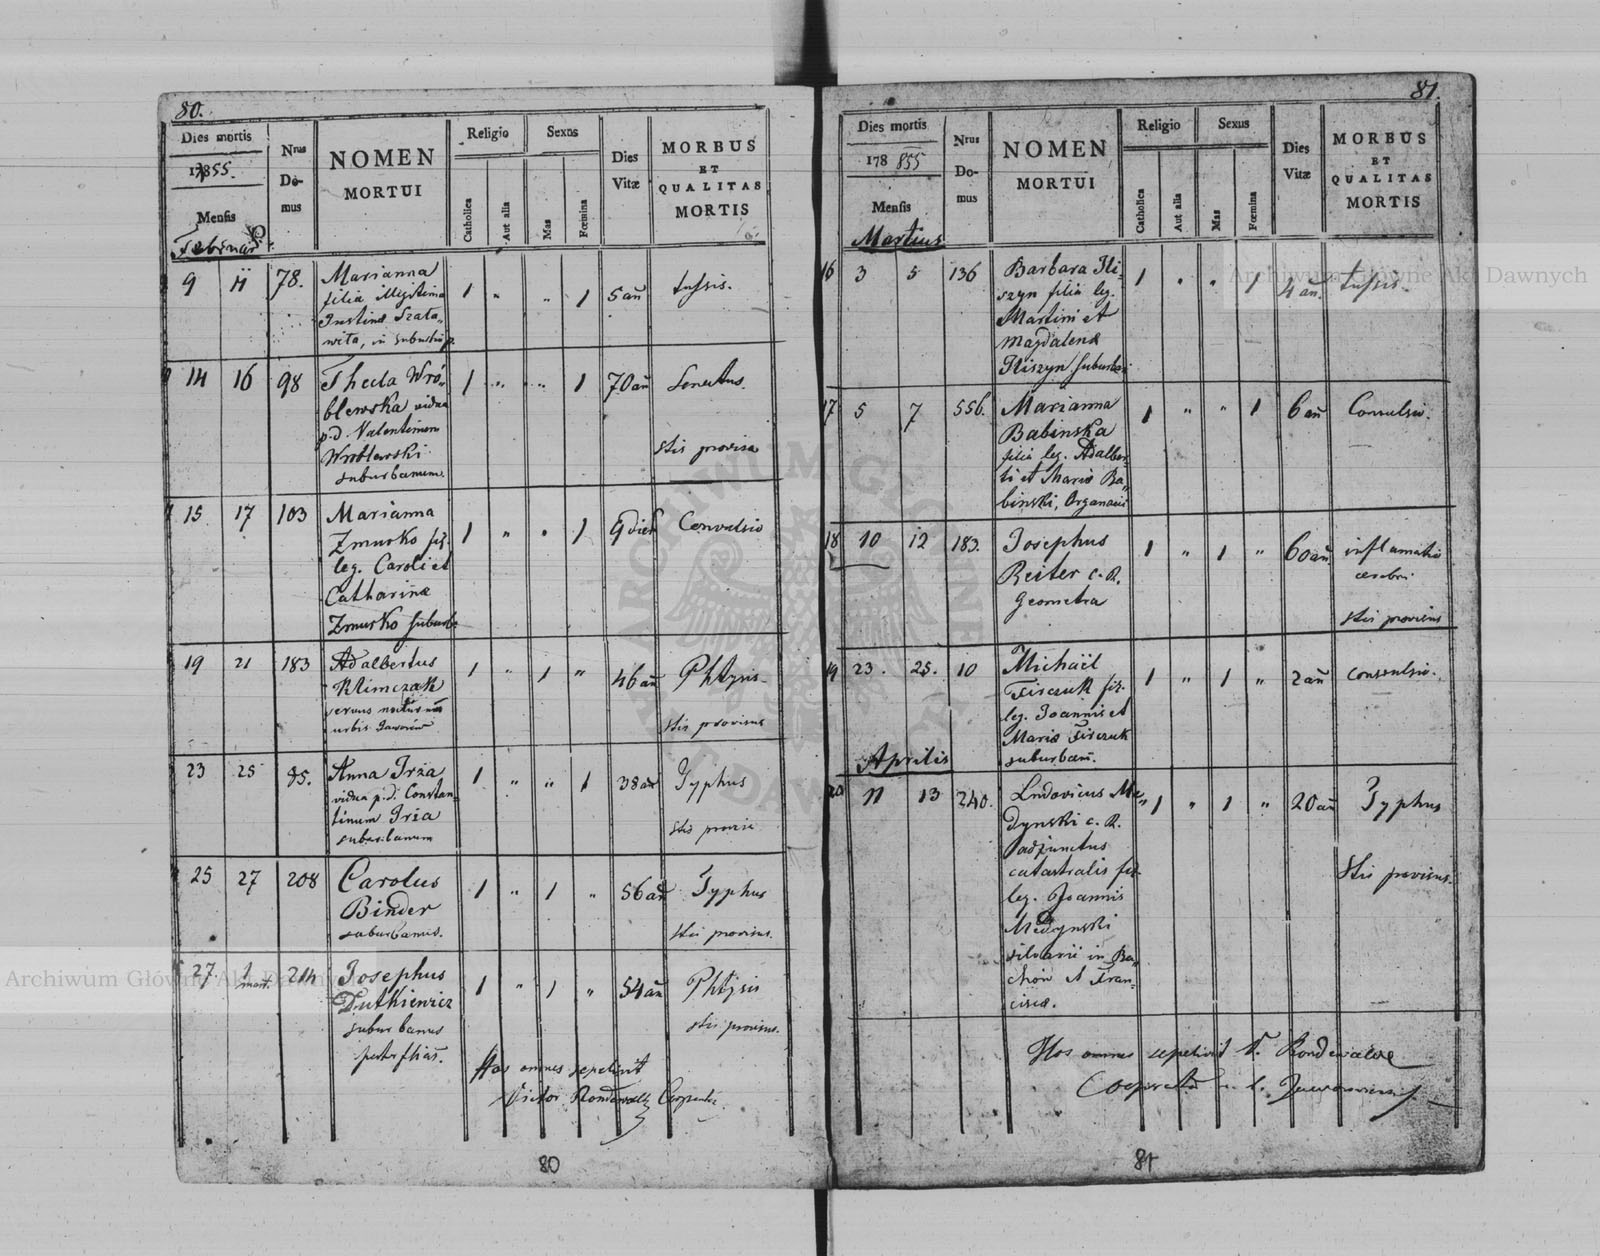 80.
Dies mortis
1855.
Mensis
Februarii
Nrus
Do-
mus
NOMEN
MORTUI
Religio
Catholica
Aut alia
Sexus
Mas
Fœmina
Dies
Vitæ
MORBUS
ET
QUALITAS
MORTIS
9 11 78. Marianna 1 " " 1 5 añ tussis.
filia illegitima
Justinæ Szata-
14 16 98 Thecla Wró- 1 " " 1 70 añ Senectus.
blewska vidua
p.d. Valentinum
Wróblewski
suburbanum.
Stis provisa
15 17 103 Marianna 1 " " 1 9 dies Convulsio
Zmurko fil.
leg. Caroli et
Catharinæ
Zmurko suburb.
19 21 183 Adalbertus 1 " 1 " 46 añ Phtysis
Klimczak
servus nocturnus
urbis
Stis provisus
23 25 85. Anna Irża 1 " " 1 38 añ Typhus
vidua p.d. Constan-
tinum Irża
suburbanum
Stis
25 27 208 Carolus 1 " 1 " 56 añ Typhus
Binder
suburbanus.
Stis provisus.
27 1 mart. 214 Josephus 1 " 1 " 54 añ Phtysis
Dutkiewicz
suburbanus
Stis provisus.
Hos omnes sepelivit
Victor
80
81.
Dies mortis
178 855
Mensis
Martius
Nrus
Do-
mus
NOMEN
MORTUI
Religio
Catholica
Aut alia
Sexus
Mas
Fœmina
Dies
Vitæ
MORBUS
ET
QUALITAS
MORTIS
16 3 5 136 Barbara Ili- 1 " " 1 4 añ. tussis.
szyn filia leg.
Martini et
Magdalenæ
Iliszyn suburban.
17 5 7 556. Marianna 1 " " 1 6 añ Convulsio.
Babinska
filia leg. Adalber-
ti et Mariæ Ba-
binski, Organarii
18 10 12 183. Josephus 1 " 1 " 60 añ inflamatio
Reiter c.R. cerebri
Geometra
Stis provisus
19 23. 25. 10 Michaël 1 " 1 " 2 añ convulsio.
fil.
leg. Joannis et
Mariæ
suburbani.
Aprilis
20 11 13 240. Ludovicus Me- 1 " 1 " 20 añ Typhus
dynski c.R.
adjunctus
catastralis fil.
leg. Joannis
Medynski
in Ba-
et Fran-
ciscæ.
Stis provisus.
Hos omnes sepelivit V.
81
Archiwum Główne Akt Dawnych
Archiwum Główne Akt Dawnych
ARCHIWUM GŁÓWNE AKT DAWNYCH